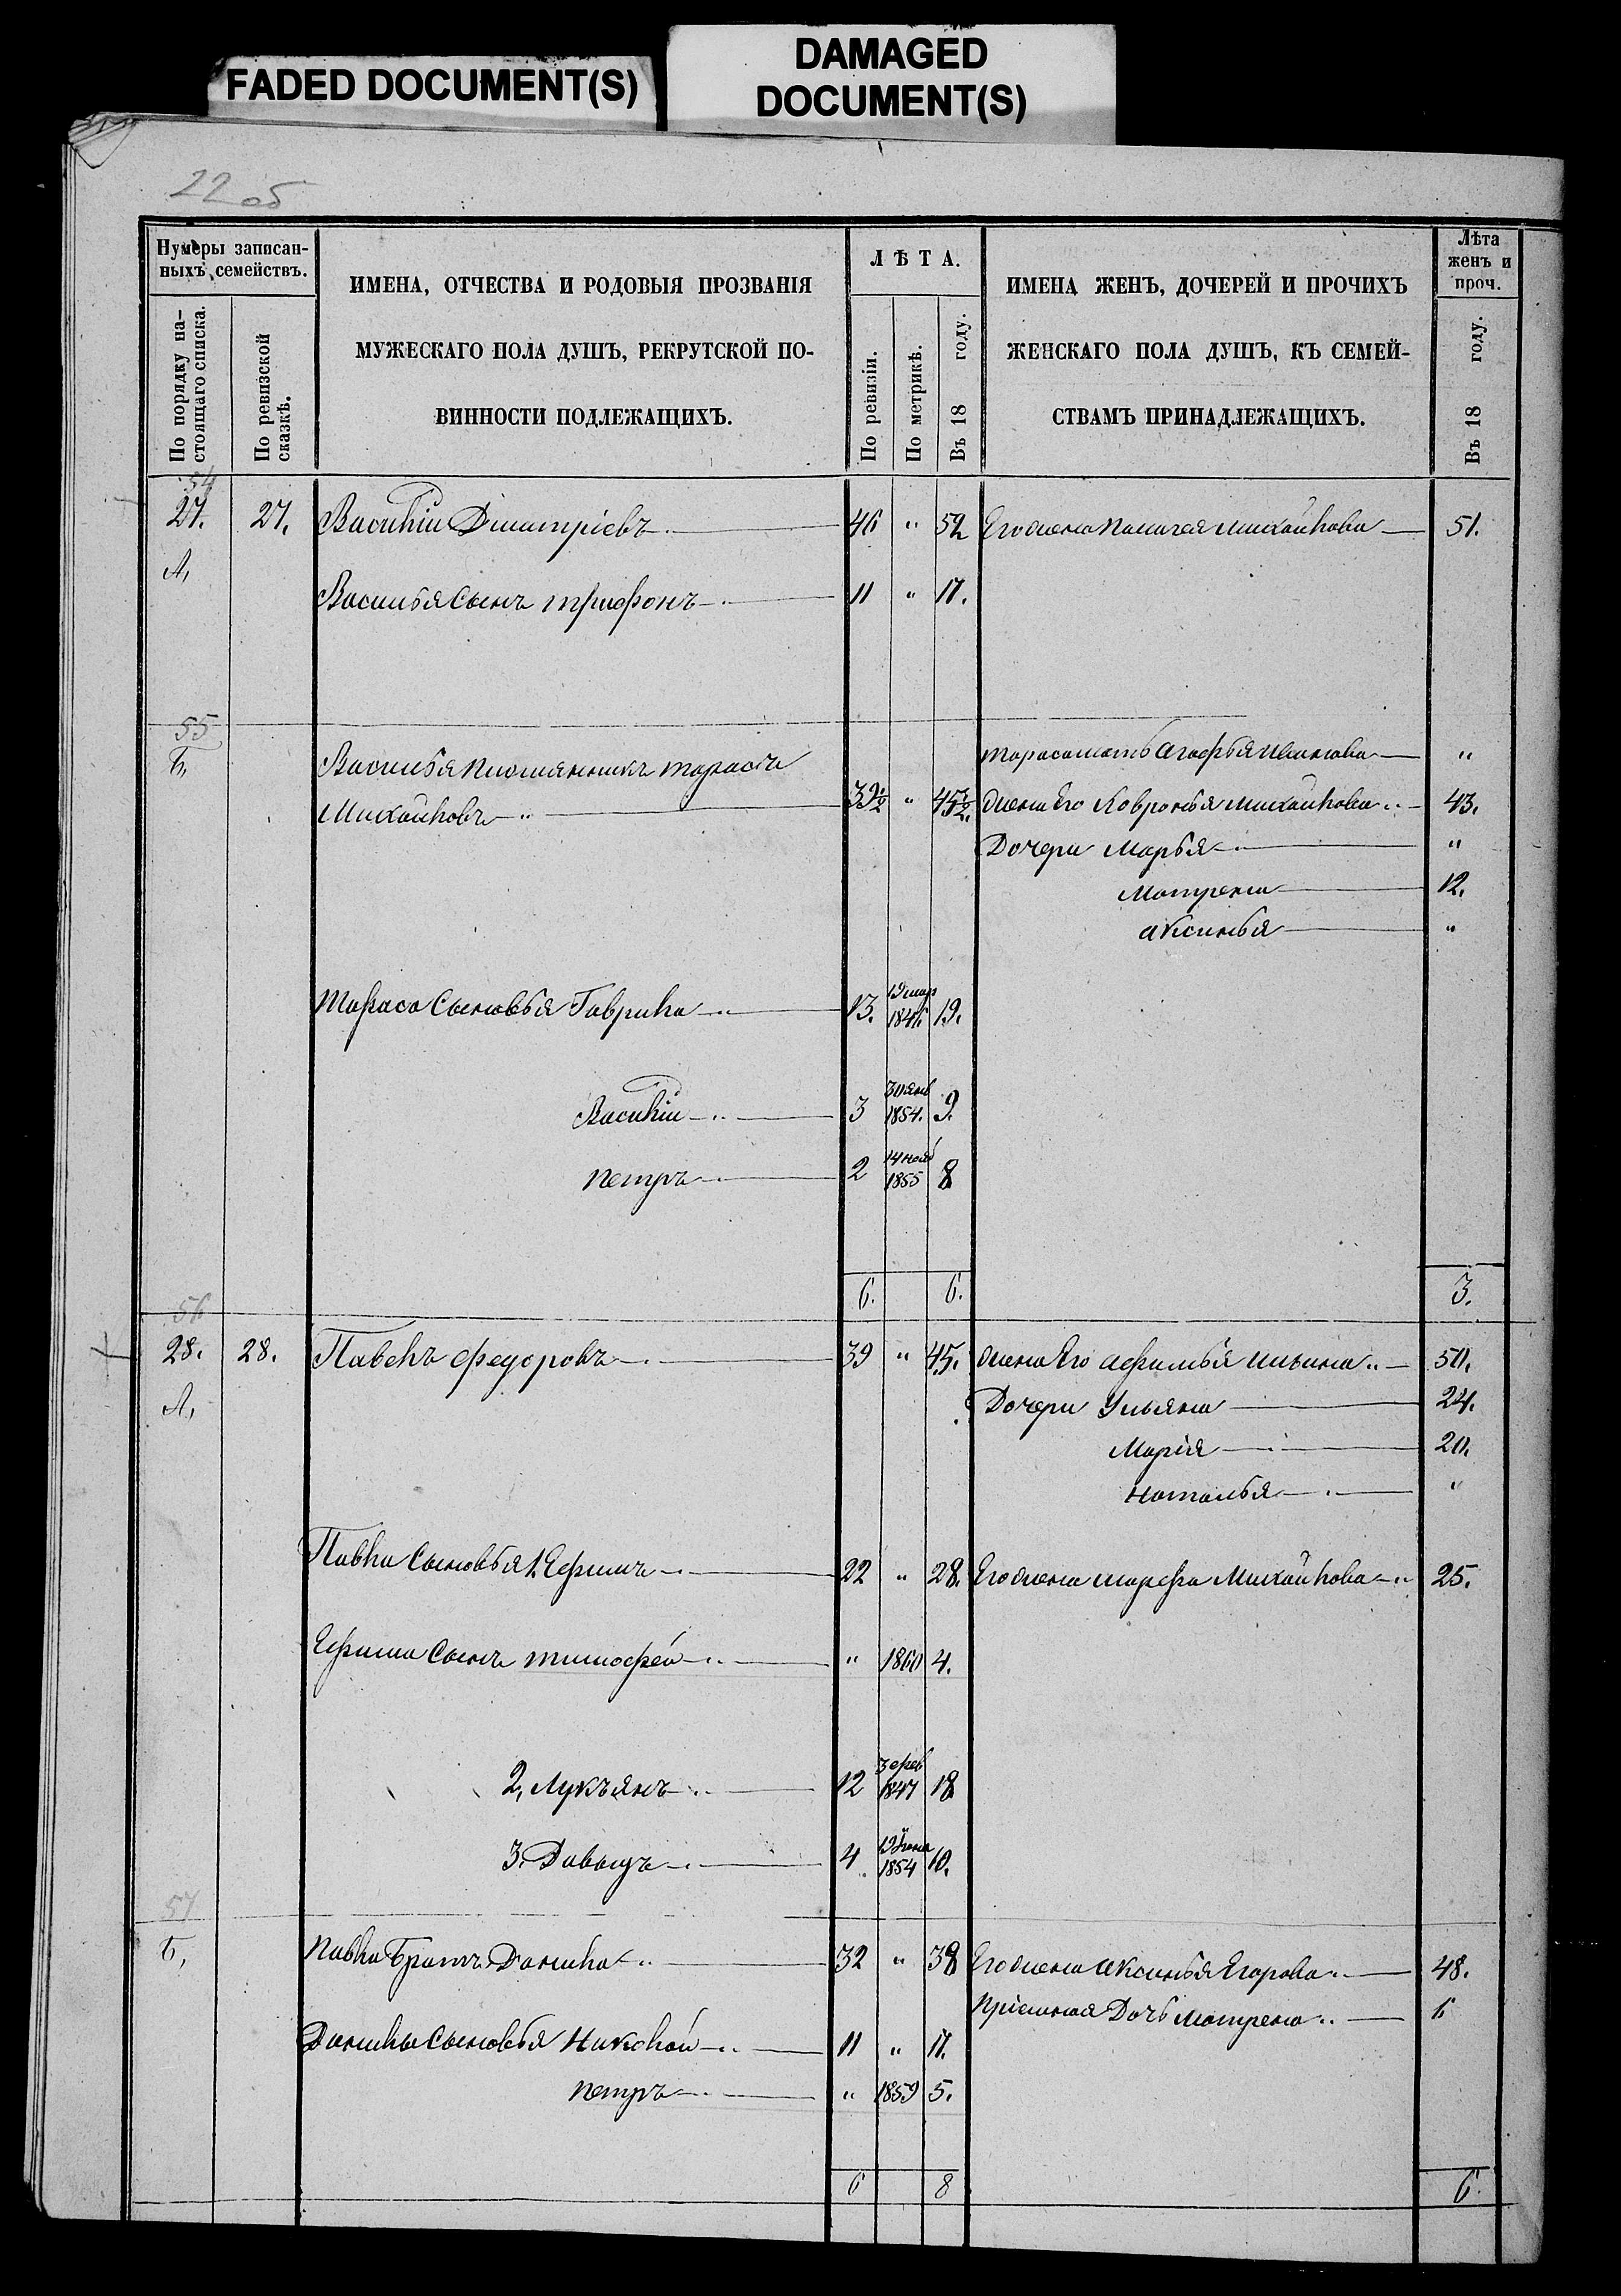 FADED DOCUMENT(S)
DAMAGED
DOCUMENT(S)
22 об
Нумеры записан-
ныхъ семействъ.
По порядку на-
стоящаго списка.
По ревизской
сказкѣ.
ИМЕНА, ОТЧЕСТВА И РОДОВЫЯ ПРОЗВАНІЯ
МУЖЕСКАГО ПОЛА ДУШЪ, РЕКРУТСКОЙ ПО-
ВИННОСТИ ПОДЛЕЖАЩИХЪ.
ЛѢТА.
По ревизіи.
По метрикѣ.
Въ 18 году.
ИМЕНА ЖЕНЪ, ДОЧЕРЕЙ И ПРОЧИХЪ
ЖЕНСКАГО ПОЛА ДУШЪ, КЪ СЕМЕЙ-
СТВАМЪ ПРИНАДЛЕЖАЩИХЪ.
Лѣта
женъ и
проч.
Въ 18 году.
54
27. 27. Василій Дмитріевъ 46 " 52 Его жена Палагея Михайлова 51.
А,
Василья Сынъ трифонъ 11 " 17.
55
Б, Василья племянникъ тарасъ тараса мать Агафья Иванова "
Михайловъ 39½ " 45½ жена Его Хавронья Михайлова 43.
Дочери Марья "
Матрена 12.
аксинья "
Тараса Сыновья Гаврила 13. 19 мар 1846 19.
Василій 3 30 янв 1854. 9.
петръ 2 14 ноя 1855 8
6. 6. 3.
56
28. 28. Павелъ федоровъ 39 " 45. жена Его афимья ильина 50.
А, Дочери Ульяна 24.
Марія 20.
наталья "
Павла Сыновья 1, Ефимъ 22 " 28. Его жена марфа Михайлова 25.
Ефима Сынъ тимофей " 1860 4.
2, Лукъянъ 12 3 фев 1847 18
3. Давыдъ 4 1854 10.
57
Б, Павла Братъ Данила 32 " 38 Его жена аксинья Егорова 48.
Пріемная Дочь матрена 6
Данилы Сыновья Николай 11 " 17.
петръ " 1859 5.
6 8 6.